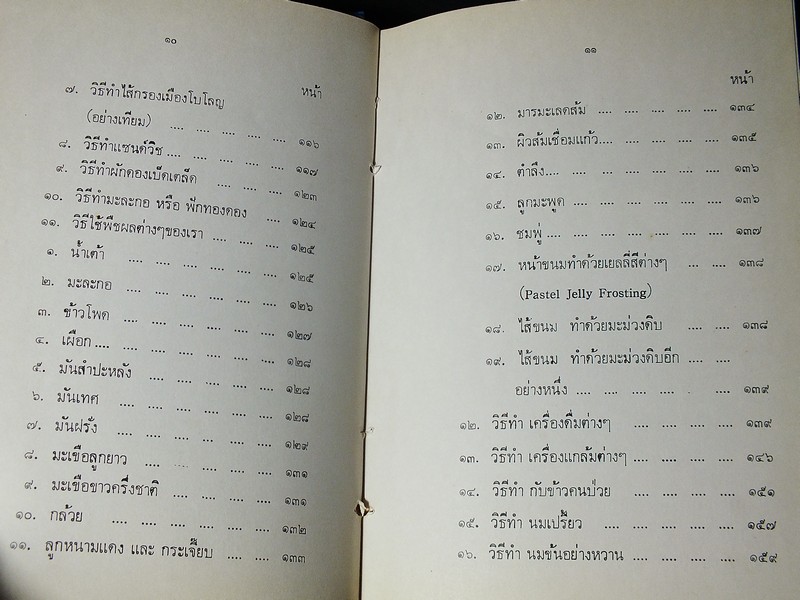 ๑๐
หน้า
๗. วิธีทำไส้กรองเมืองโบโลญ
(อย่างเทียม) .... .... .... .... .... ๑๑๖
๘. วิธีทำแซนด์วิช .... .... .... .... .... ๑๑๗
๙. วิธีทำผักดองเบ็ดเตล็ด .... .... .... ๑๒๓
๑๐. วิธีทำมะละกอ หรือ ฟักทองดอง .... .... ๑๒๔
๑๑. วิธีใช้พืชผลต่างๆของเรา .... .... .... ๑๒๕
๑. น้ำเต้า .... .... .... .... .... ๑๒๕
๒. มะละกอ .... .... .... .... .... ๑๒๖
๓. ข้าวโพด .... .... .... .... .... ๑๒๗
๔. เผือก .... .... .... .... .... .... ๑๒๘
๕. มันสำปะหลัง .... .... .... .... ๑๒๘
๖. มันเทศ .... .... .... .... .... ๑๒๘
๗. มันฝรั่ง .... .... .... .... .... ๑๒๙
๘. มะเขือลูกยาว .... .... .... .... ๑๓๑
๙. มะเขือขาวครึ่งชาติ .... .... .... ๑๓๑
๑๐. กล้วย .... .... .... .... .... ๑๓๒
๑๑. ลูกหนามแดง และ กระเจี๊ยบ .... .... ๑๓๓
๑๑
หน้า
๑๒. มารมะเลดส้ม .... .... .... .... .... ๑๓๔
๑๓. ผิวส้มเชื่อมแก้ว .... .... .... .... .... ๑๓๕
๑๔. ตำลึง .... .... .... .... .... .... ๑๓๖
๑๕. ลูกมะพูด .... .... .... .... .... ๑๓๖
๑๖. ชมพู่ .... .... .... .... .... .... ๑๓๗
๑๗. หน้าขนมทำด้วยเยลลี่สีต่างๆ .... .... ๑๓๘
(Pastel Jelly Frosting)
๑๘. ไส้ขนม ทำด้วยมะม่วงดิบ .... .... ๑๓๘
๑๙. ไส้ขนม ทำด้วยมะม่วงดิบอีก .... ....
อย่างหนึ่ง .... .... .... .... .... ๑๓๙
๑๒. วิธีทำ เครื่องดื่มต่างๆ .... .... .... .... ๑๓๙
๑๓. วิธีทำ เครื่องแกล้มต่างๆ .... .... .... .... ๑๔๖
๑๔. วิธีทำ กับข้าวคนป่วย .... .... .... .... ๑๕๑
๑๕. วิธีทำ นมเปรี้ยว .... .... .... .... .... ๑๕๗
๑๖. วิธีทำ นมข้นอย่างหวาน .... .... .... .... ๑๕๙